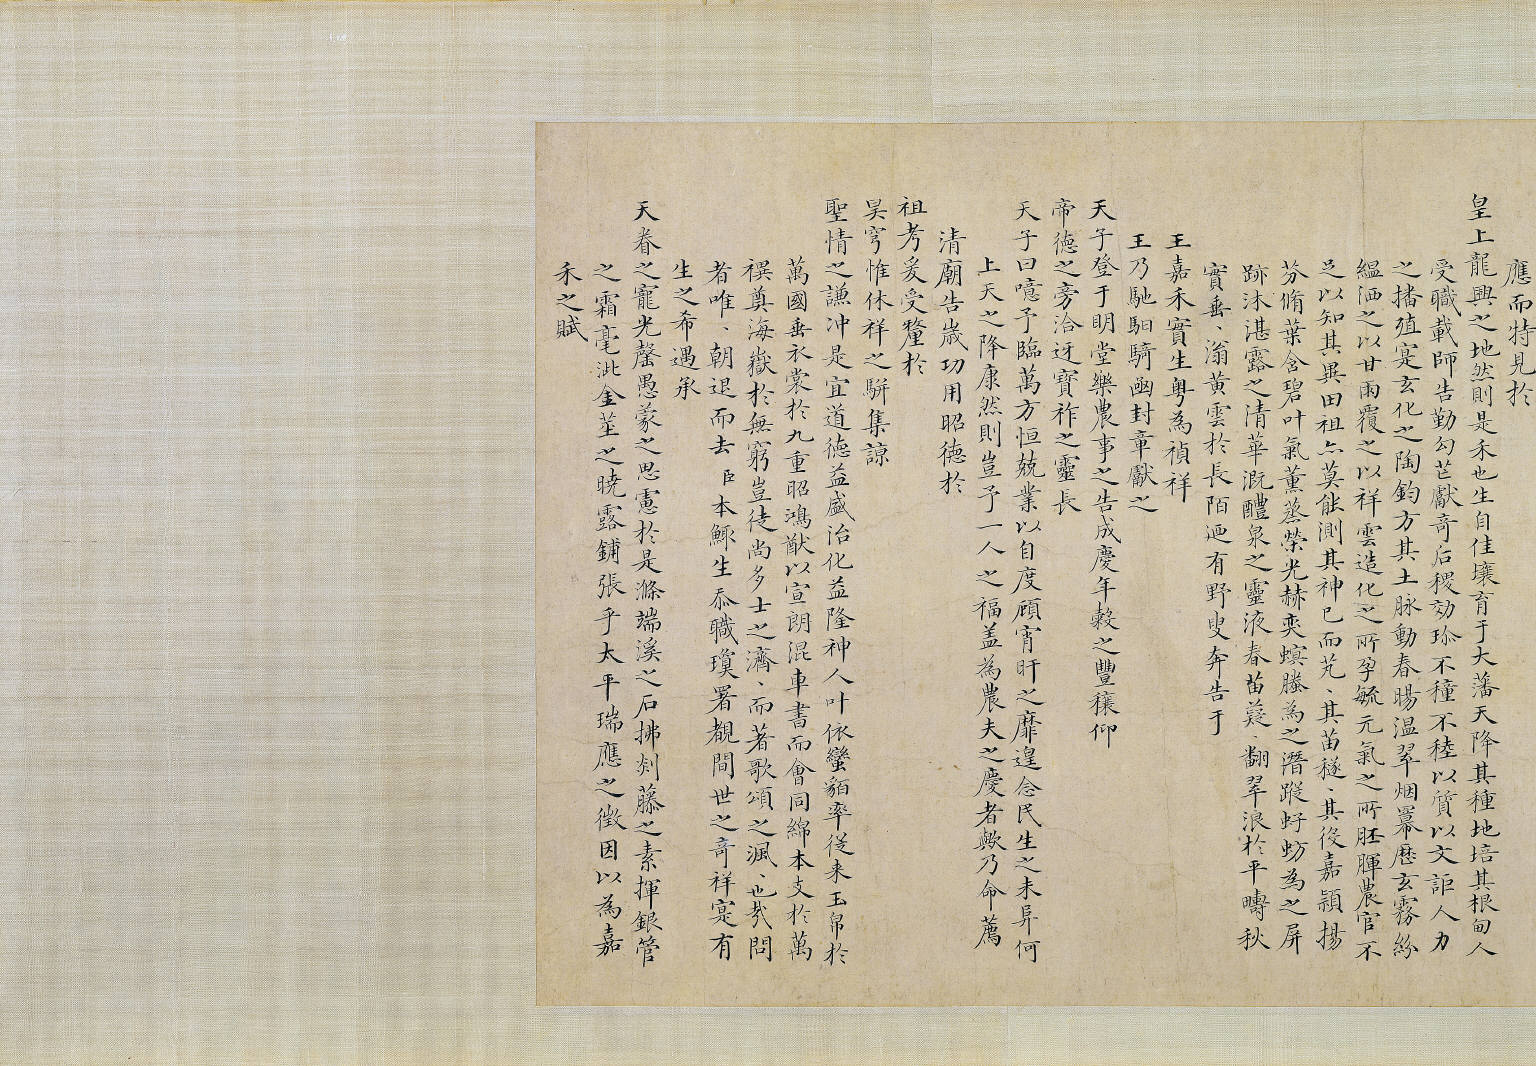 應而特見於
皇上龍興之地然則是禾也生自佳壤育于大藩天降其種地培其根甸人
受職載師告勤勾芒獻奇后稷効珎不穜不稑以質以文詎人力
之播殖寔玄化之陶鈞方其土脉動春暘温翠烟羃歷玄霧紛
縕洒之以甘雨覆之以祥雲造化之所孕毓元氣之所胚暉農官不
足以知其異田祖亦莫能測其神已而芃、其苗穟、其後嘉穎揚
芬脩葉含碧叶氣薰蒸榮光赫奕螟螣為之潛蹤蚜蚄為之屏
跡沐湛露之清華溉醴泉之靈液春苗薿、翻翠浪於平疇秋
實垂、滃黄雲於長陌迺有野叟奔告于
王嘉禾實生粤為禎祥
王乃馳馹騎函封章獻之
天子登于明堂樂農事之告成慶年穀之豐穰仰
帝德之旁洽迓寶祚之靈長
天子曰噫予臨萬方恒兢業以自度顧宵旰之靡遑念民生之未舁何
上天之降康然則豈予一人之福盖為農夫之慶者歟乃命薦
清廟告歲功用昭德於
祖考爰受釐於
昊穹惟休祥之騈集諒
聖情之謙冲是宜道德益盛治化益隆神人叶依蠻貊率從来玉帛於
萬國垂衣裳於九重昭鴻猷以宣朗混車書而會同綿本支於萬
禩奠海嶽於無窮豈徒尚多士之濟、而著歌頌之渢、也㢤問
者唯、朝退而去臣本鯫生忝職瓊署覩間世之奇祥寔有
生之希遇承
天眷之寵光罄愚蒙之思慮於是滌端溪之石拂剡藤之素揮銀管
之霜毫泚金莖之曉露鋪張乎太平瑞應之徴因以為嘉
禾之賦